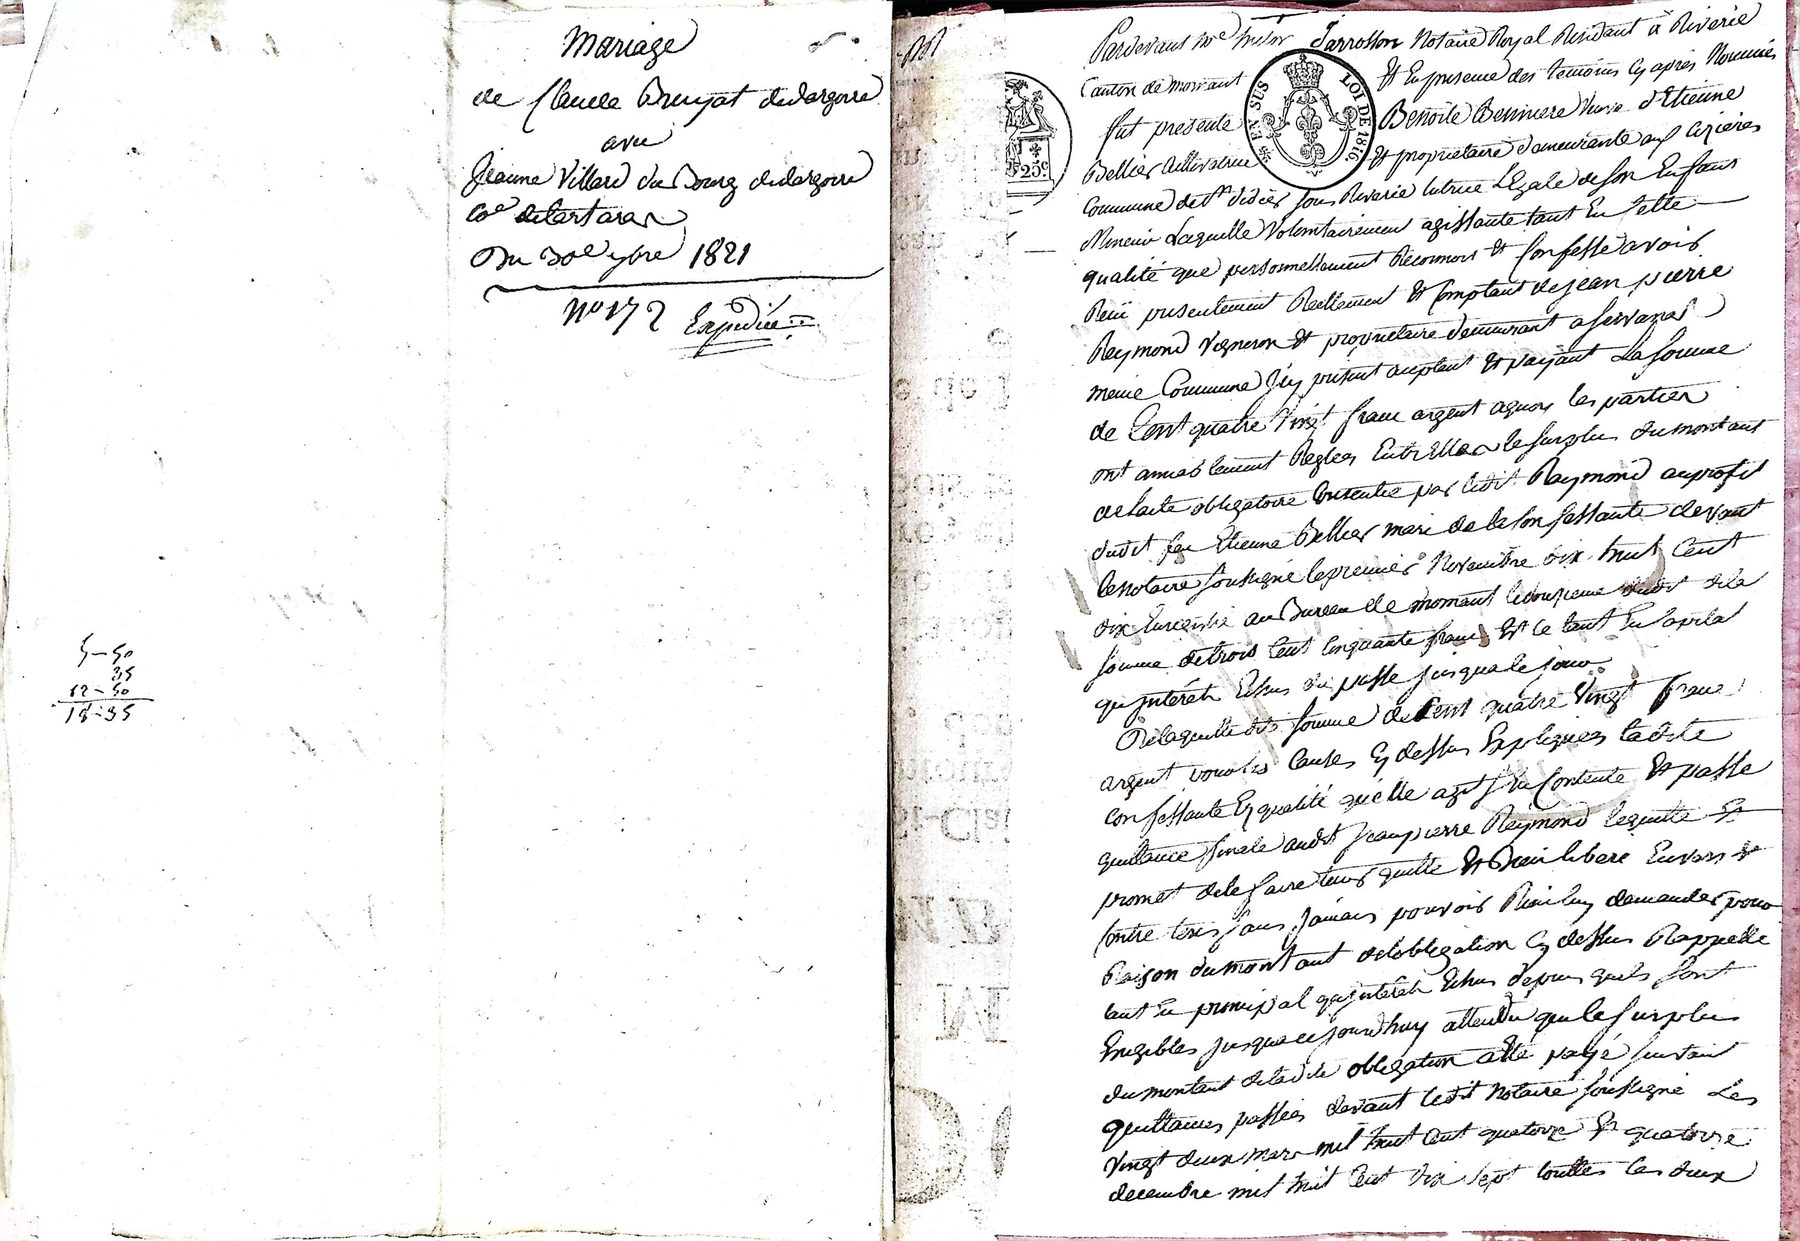 Mariage
de Claude Bruyat de Largoire
avec
Jeanne Villard du Bourg de Largoire
Cne de tartaras
Du 30e 9bre 1821
No 172 Expédiée
5-50
35
12-50
18-35
Pardevant Me Tarrosson Notaire Royal Résidant à Riverie
Canton de mornant & En presence des temoins Cy après Nommés
fut presente Benoite Besniere Veuve d'Etienne
Bellier Cultivatrice & propriétaire demeurante aux
Commune de St Didier Sous Riverie tutrice Legale de Son Enfans
Mineur Laquelle Volontairement agissante tant En Cette
qualité que personnellement Reconnoit & Confesse avoir
Reçû presentement Réellement & Comptant de jean pierre
Reymond Vigneron & propriétaire demeurant a
meme Commune Jcy présent acceptant & payant La Somme
de Cent quatre Vingt franc argent aquoy les parties
ont amiablement Reglés Entr'Elles le Surplus du montant
de Lacte obligatoire Consentie par Ledit Raymond au profit
dudit feu Etienne Bellier mari de la Confessante devant
le Notaire Soussigné le premier Novembre dix huit Cent
dix Enregistré au Bureau de mornant le douzieme dudit de la
Somme de trois Cent Cinquante franc & Ce tant En Capital
qu'jntérêts Echus du passé jusqu'a le jour
De laquelle dite Somme de Cent quatre Vingt franc
argent pour les Causes Cy dessus Expliquées ladite
Confessante En qualité qu'elle agit Se Contente & passe
quittance finale audit Jean pierre Reymond le quitte &
promet de le faire tenir quitte & Bien liberé Envers &
Contre tous Sans jamais pouvoir Rien luy demander pour
Raison du montant de l'obligation Cy dessus Rappellé
tant En principal qu'jntérêts Echus depuis quils Sont
Exigibles jusqu'a cejourd'huy attendu que le Surplus
du montant de ladite obligation a été payé Suivant
quittances passées devant Ledit Notaire Soussigné Les
Vingt deux mars mil huit Cent quatorze & quatorze
decembre mil huit Cent dix Sept toutes les deux
EN SUS
LOI DE 1816.
25c